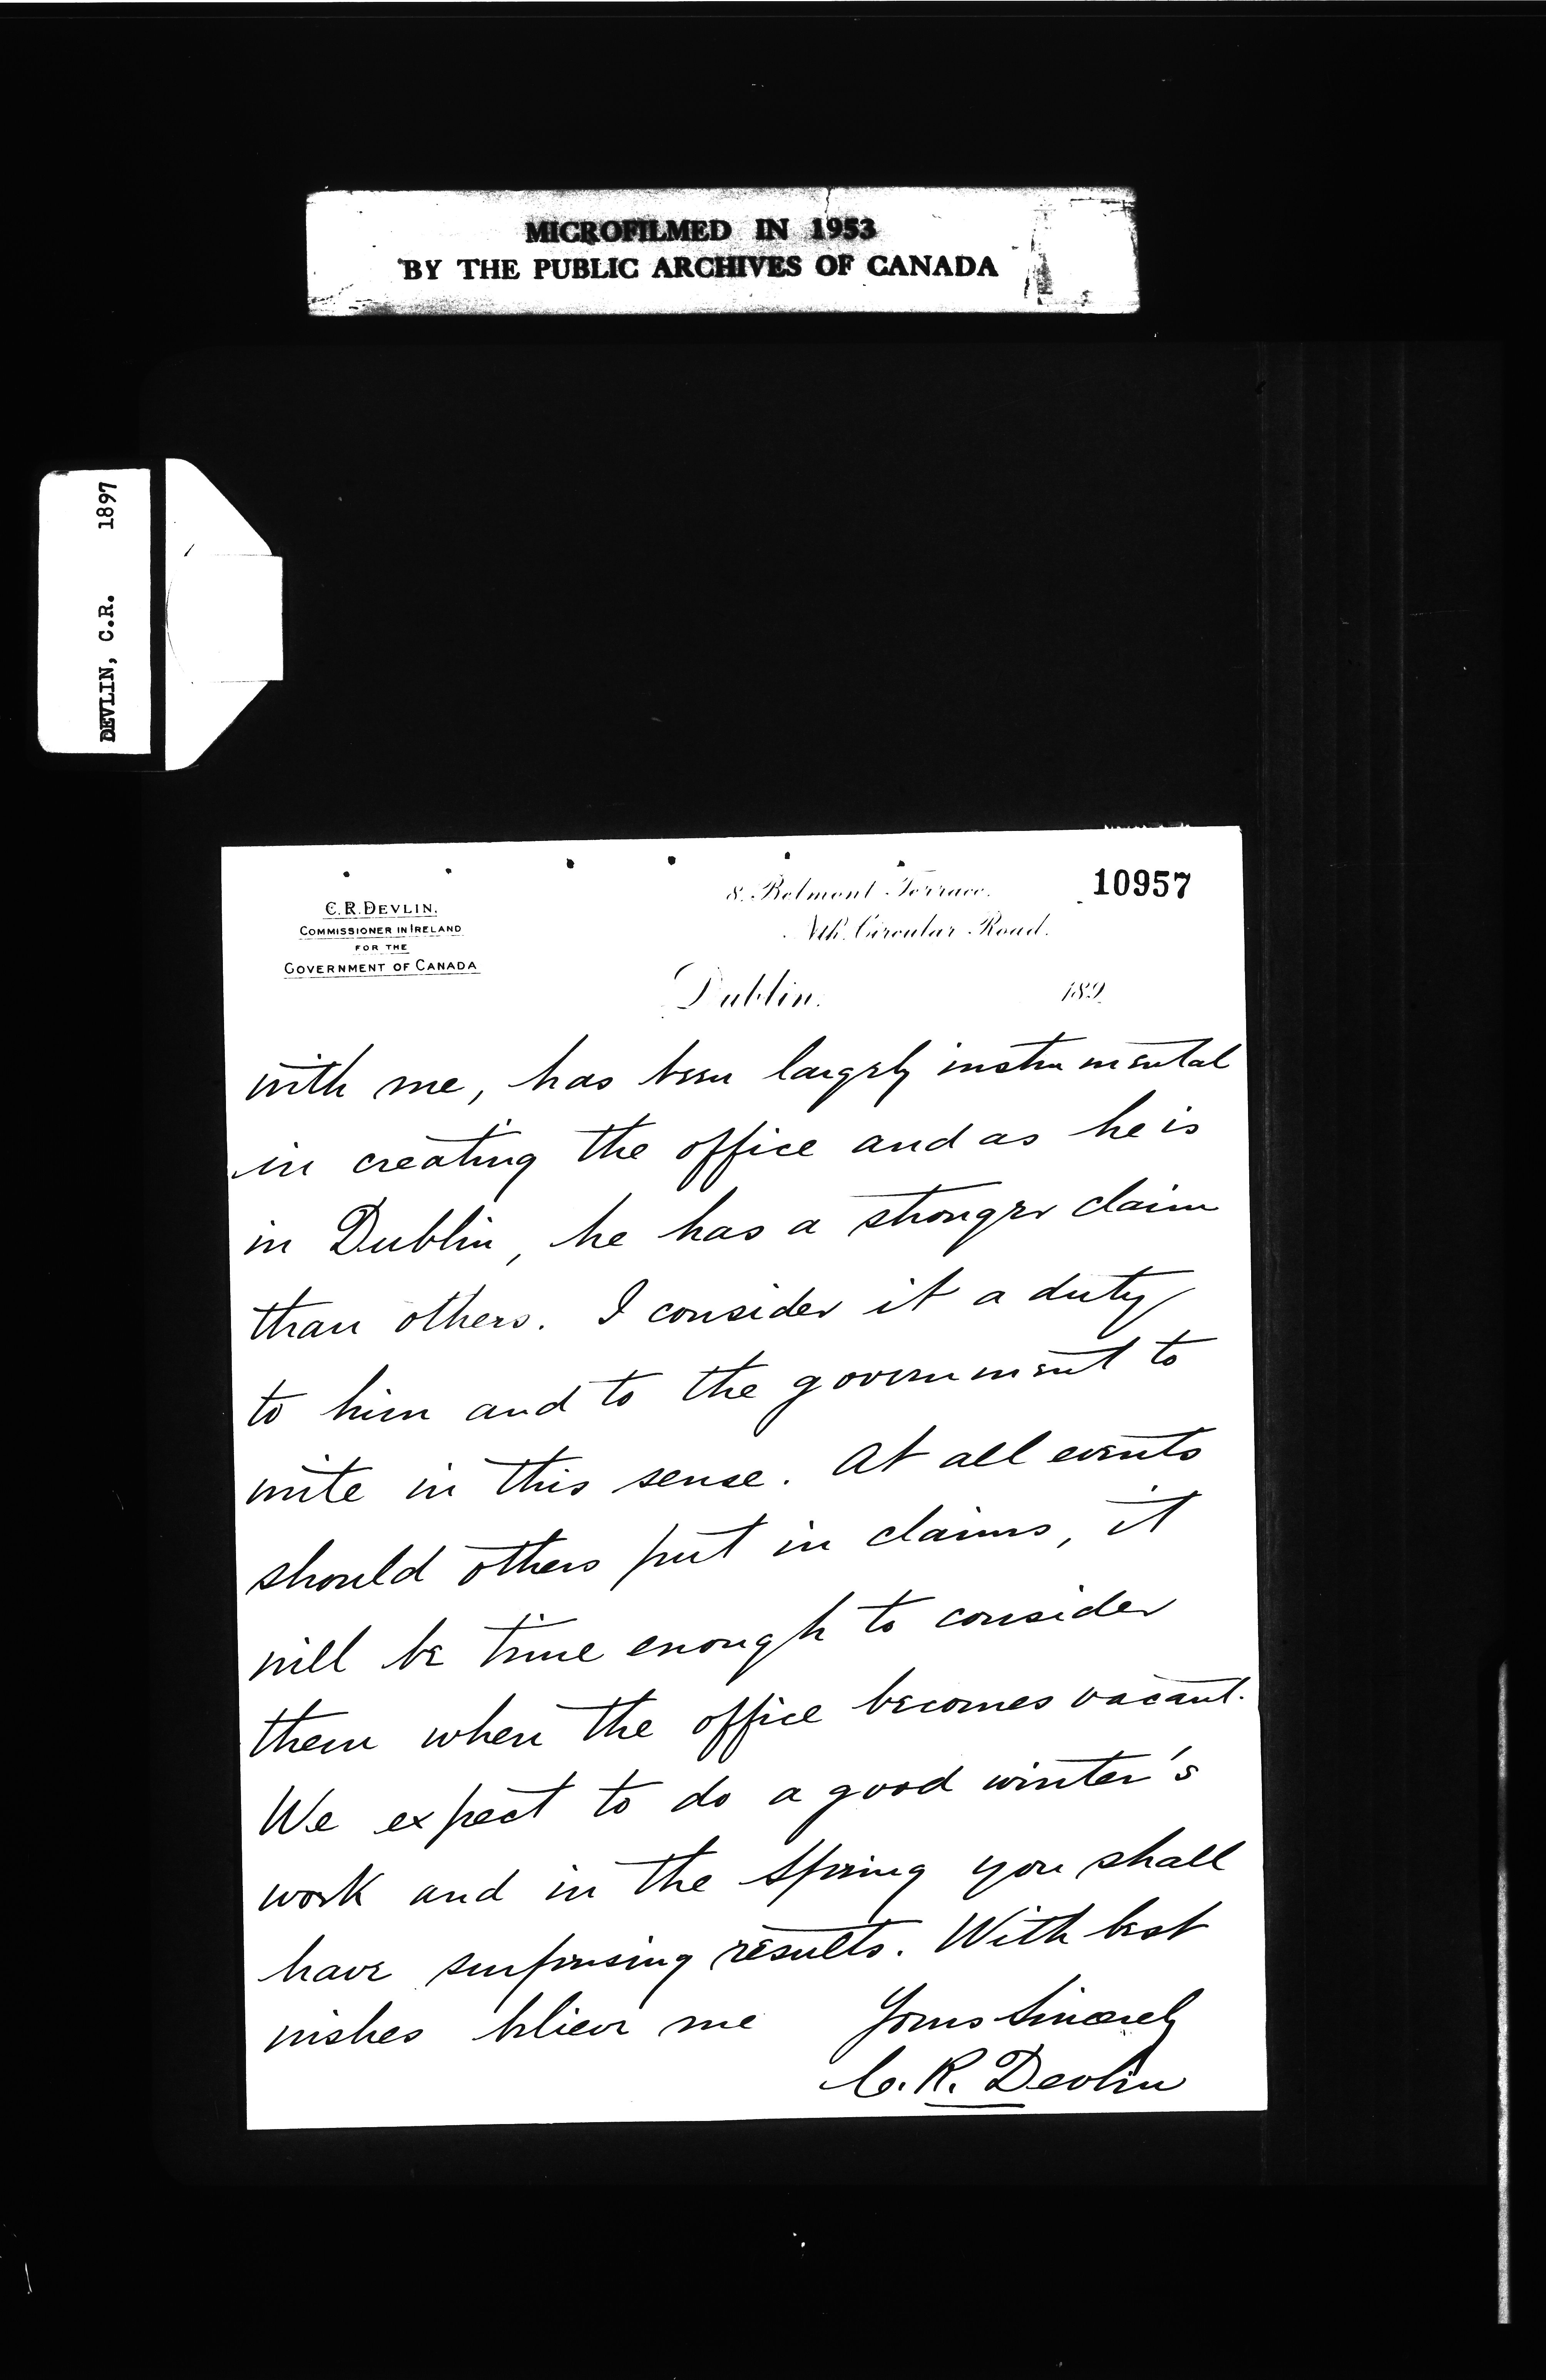 MICROFILMED IN 1953
BY THE PUBLIC ARCHIVES OF CANADA
DEVLIN, C.R. 1897
10957
C. R. DEVLIN,
COMMISSIONER IN IRELAND
FOR THE
GOVERNMENT OF CANADA
8. Belmont Terrace.
Nth. Circular Road.
Dublin. 189
with me, has been largely instrumental
in creating the office and as he is
in Dublin, he has a stronger claim
than others. I consider it a duty
to him and to the government to
write in this sense. At all events
should others put in claims, it
will be time enough to consider
them when the office becomes vacant.
We expect to do a good winter's
work and in the Spring you shall
have surprising results. With best
wishes believe me Yours Sincerely
C. R. Devlin